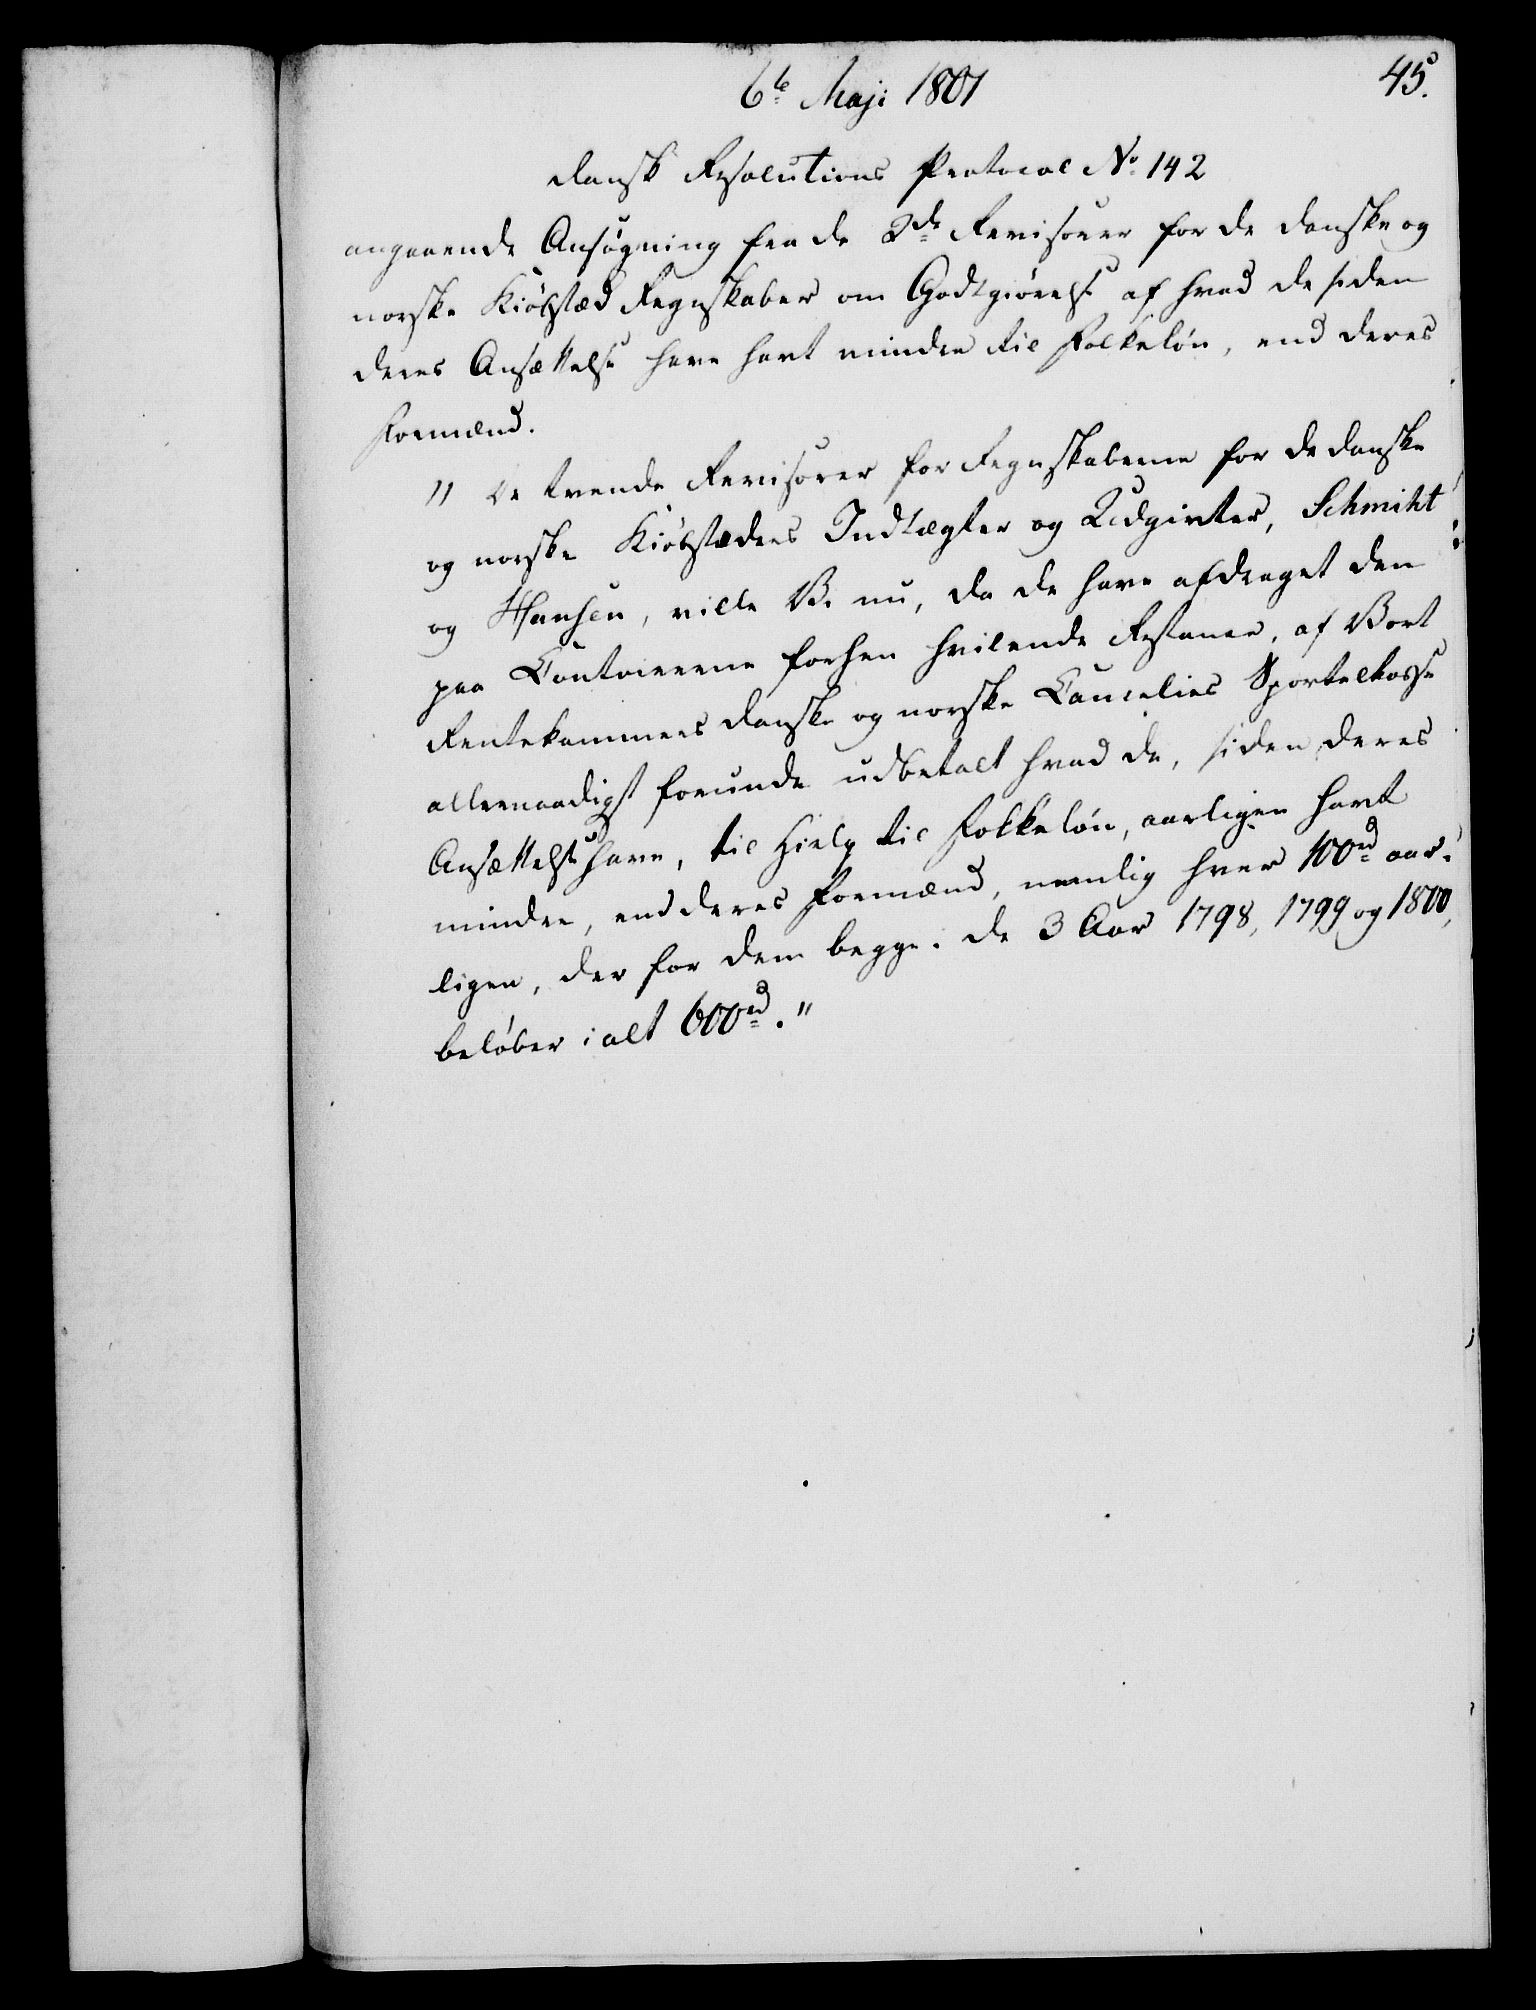 6te Maji 1801
45.
Dansk Resolutions Protocol No 142
angaaende Ansøgning fra de 2de Revisorer for de danske og
norske Kiøbstæd Regnskaber om Godtgiørelse af hvad de siden
deres Ansættelse have havt mindre til Folkeløn, end deres
Formænd.
" De tvende Revisorer for Regnskaberne for de danske
og norske Kiøbstæders Indtægter og Udgivter, Schmiht
og Hansen, ville Vi nu, da de have afdraget den
paa Contoirerne forhen hvilende Restance, af Vort
Rentekammers danske og norske Cancelies Sportelkasse
allernaadigst forunde udbetalt hvad de, siden deres
Ansættelse have, til Hielp til Folkeløn, aarligen havt
mindre, end deres Formænd, nemlig hver 100rd aar-
ligen, der for dem begge i de 3 Aar 1798, 1799 og 1800,
beløber ialt 600rd."